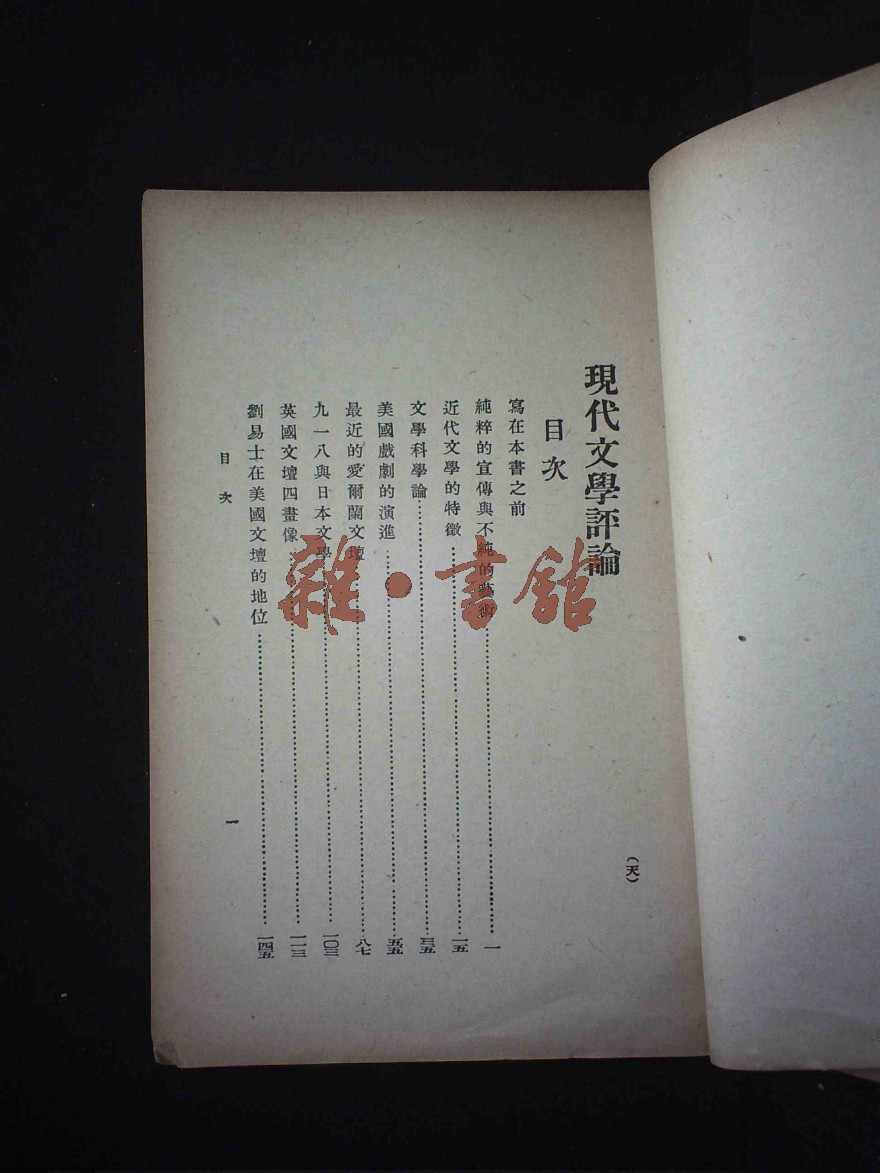 現代文學評論
(天)
目次
寫在本書之前
純粹的宣傳與不純的藝術……一
近代文學的特徵……一五
文學科學論……三五
美國戲劇的演進……五五
最近的愛爾蘭文壇……八七
九一八與日本文學……一〇三
英國文壇四畫像……一一三
劉易士在美國文壇的地位……一四五
目次
一
雜·書館